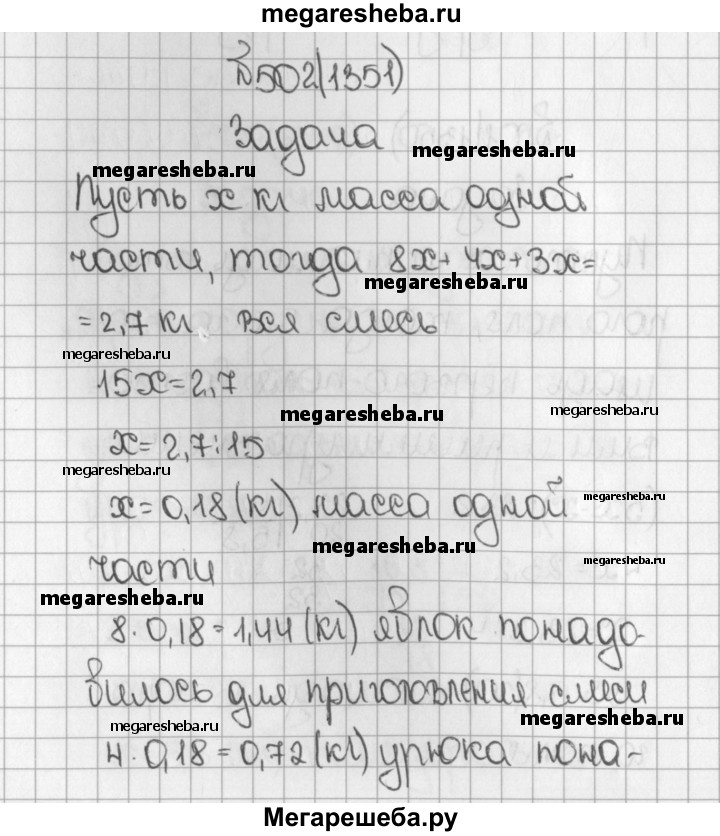 megaresheba.ru
№502(1351)
Задача
megaresheba.ru
megaresheba.ru
Пусть x кг масса одной
части, тогда 8x+4x+3x=
megaresheba.ru
=2,7 кг вся смесь
megaresheba.ru
15x=2,7
megaresheba.ru
megaresheba.ru
x=2,7:15
megaresheba.ru
x=0,18(кг) масса одной
megaresheba.ru
megaresheba.ru
части
megaresheba.ru
megaresheba.ru
8·0,18=1,44(кг) яблок понадо-
вилось для приготовления смеси
megaresheba.ru
megaresheba.ru
4·0,18=0,72(кг) урюка пона-
Мегарешеба.ру